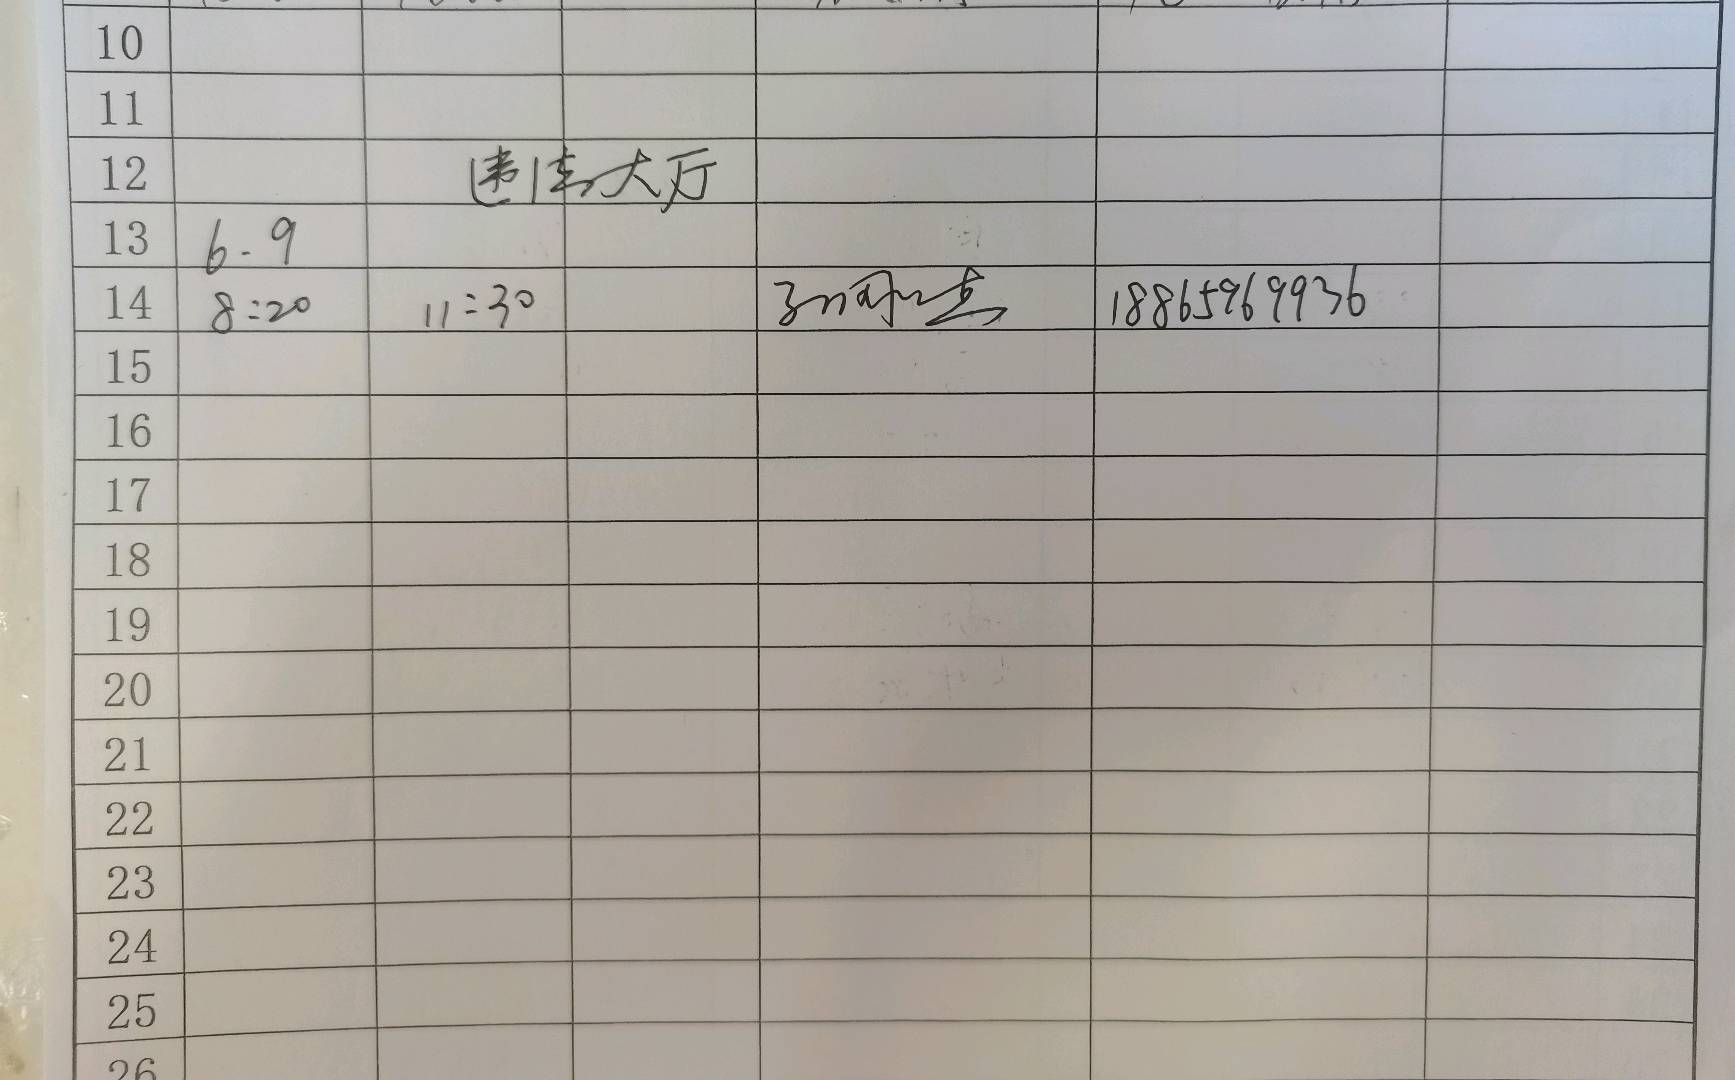 10
11
12 违法大厅
13 6.9
14 8:20 11:30 18865969936
15
16
17
18
19
20
21
22
23
24
25
26